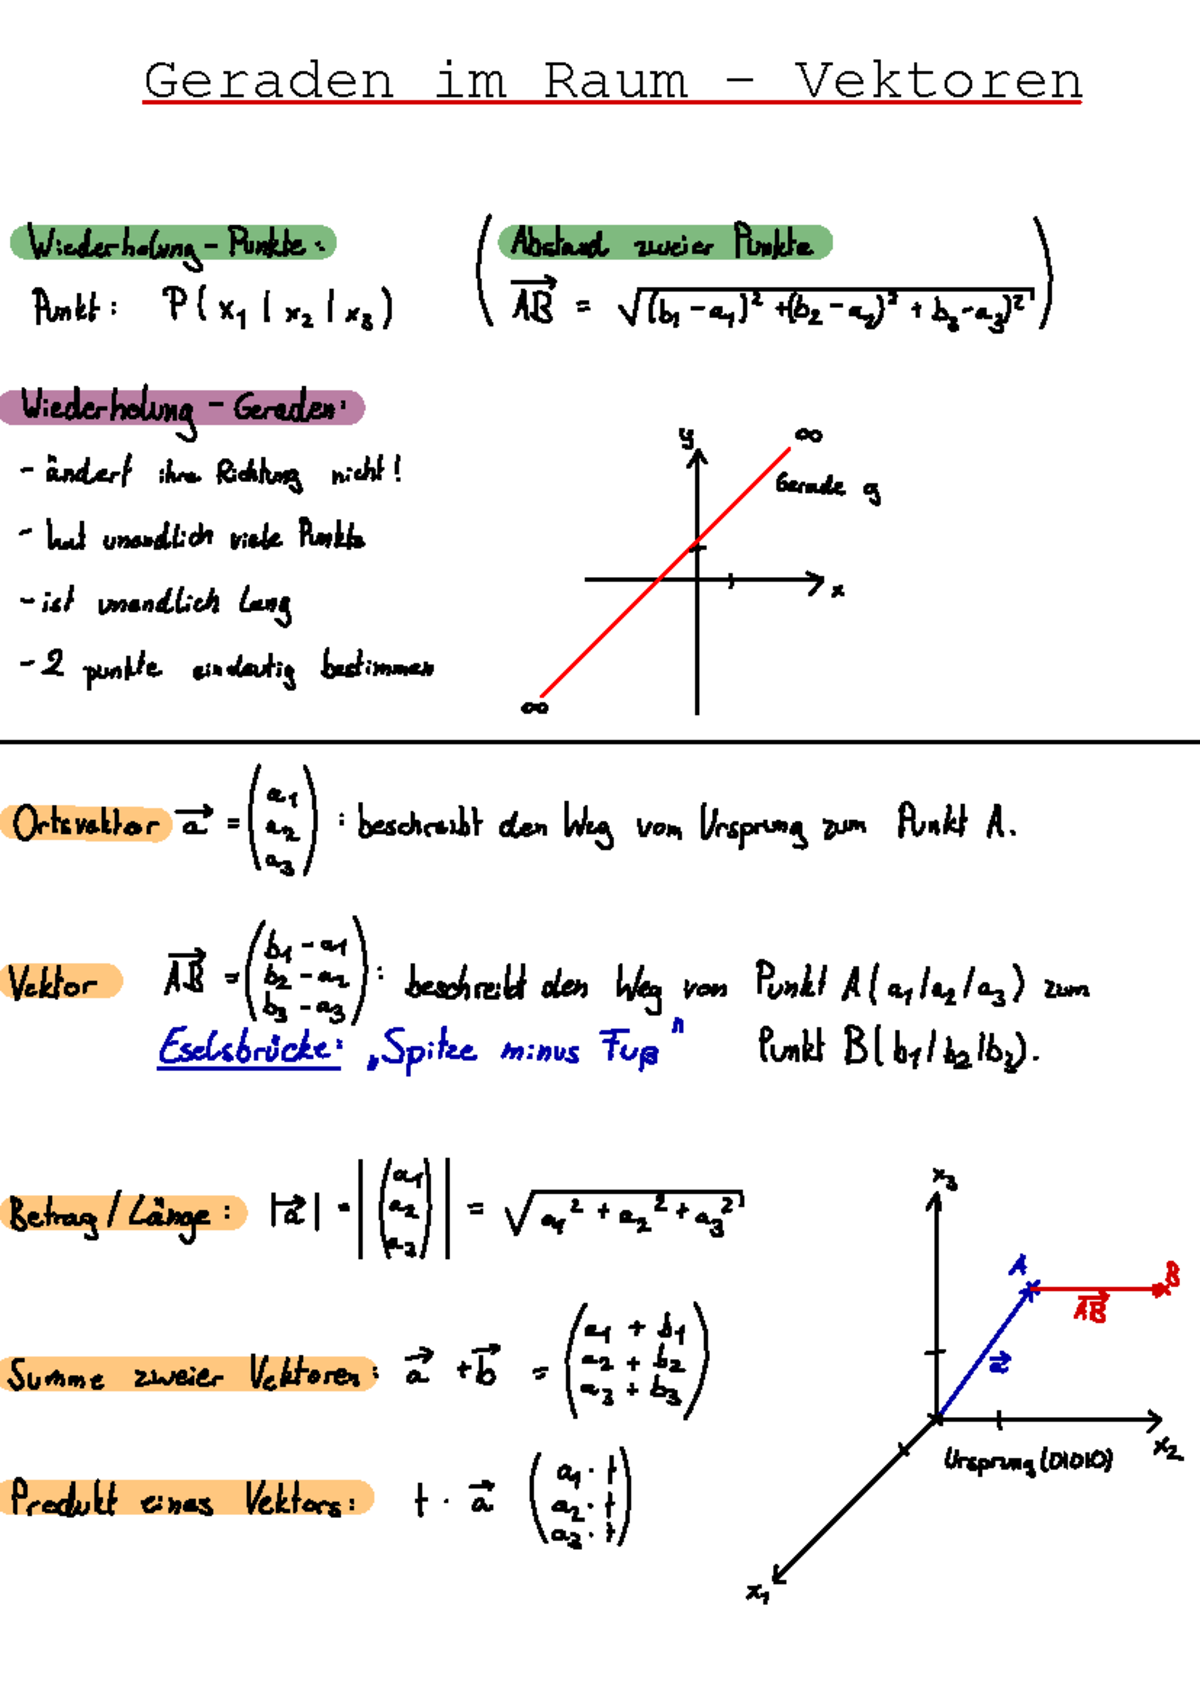 Geraden im Raum - Vektoren
Wiederholung - Punkte:
Punkt: P( x₁ | x₂ | x₃ )
Abstand zweier Punkte
AB = √(b₁ - a₁)² + (b₂ - a₂)² + b₃ - a₃)²
Wiederholung - Geraden:
- ändert ihre Richtung nicht!
- hat unendlich viele Punkte
- ist unendlich lang
- 2 punkte eindeutig bestimmen
y
∞
Gerade g
x
∞
Ortsvektor a = (a₁ a₂ a₃) : beschreibt den Weg vom Ursprung zum Punkt A.
Vektor AB = (b₁ - a₁ b₂ - a₂ b₃ - a₃) : beschreibt den Weg von Punkt A( a₁/a₂/a₃ ) zum
Eselsbrücke: „Spitze minus Fuß" Punkt B( b₁/b₂/b₃).
Betrag / Länge: |a| = |(a₁ a₂ a₃)| = √a₁² + a₂² + a₃²
Summe zweier Vektoren: a + b = (a₁ + b₁ a₂ + b₂ a₃ + b₃)
Produkt eines Vektors: t · a (a₁ · t a₂ · t a₃ · t)
x₃
A
B
AB
a
x₂
Ursprung (0|0|0)
x₁